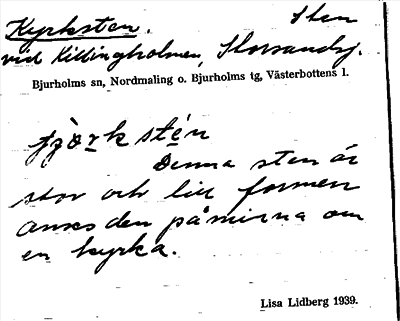 Kyrksten. Sten
vid Killingholmen, Storsandsj.
Bjurholms sn, Nordmaling o. Bjurholms tg, Västerbottens l.
sten
Denna sten är
stor och till formen
anses den påminna om
en kyrka.
Lisa Lidberg 1939.